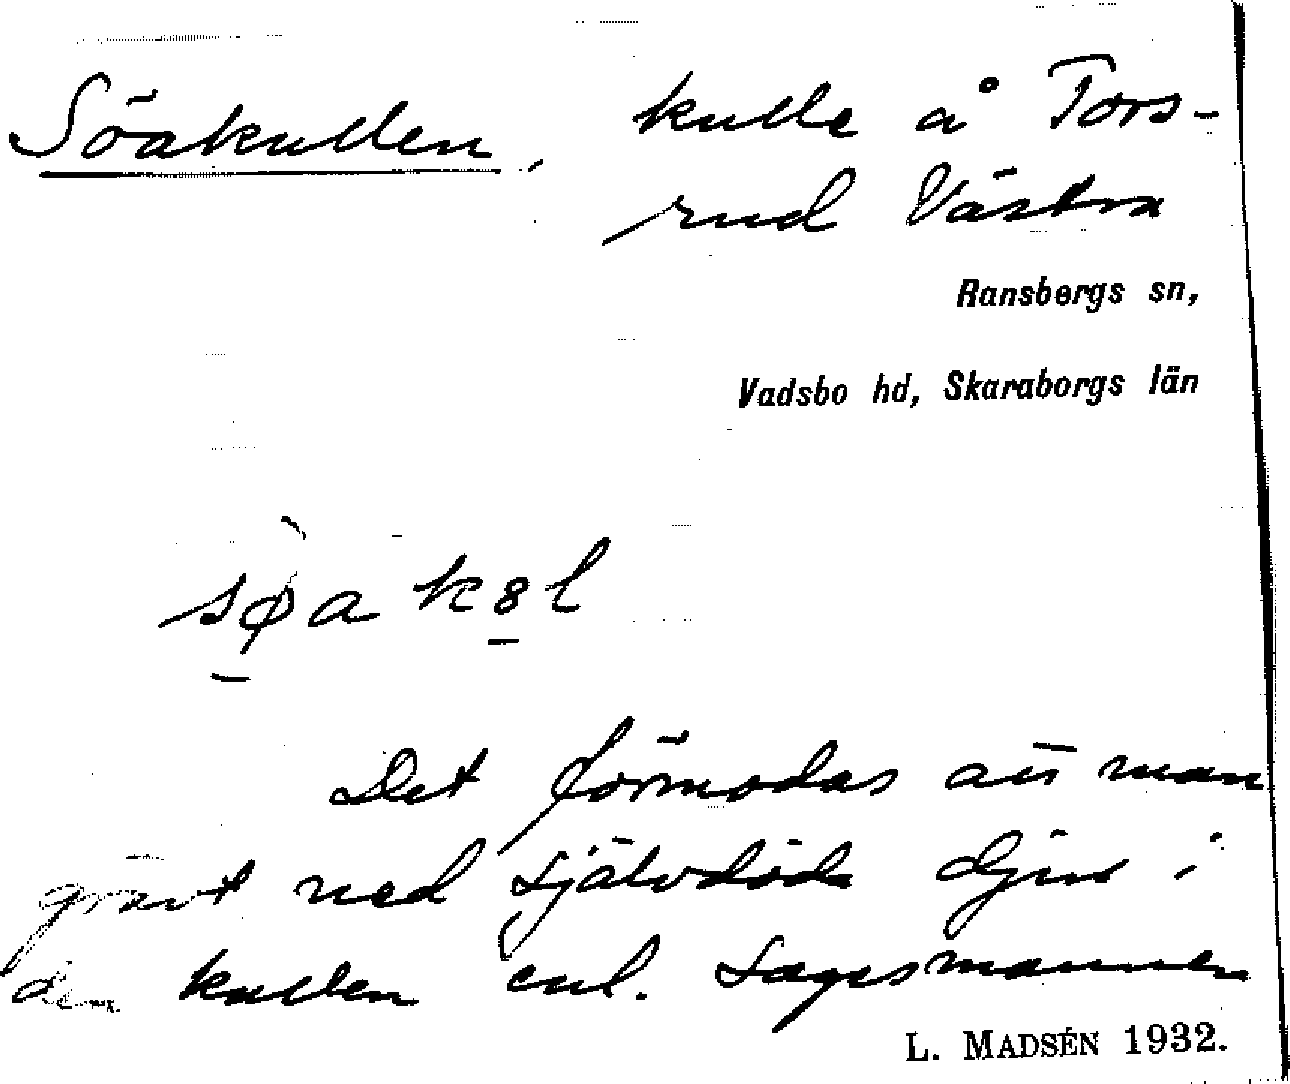 Söakullen, kulle å Tors-
rud Västra
Ransbergs sn,
Vadsbo hd, Skaraborgs län
Det förmodas att man
grävt ned självdöda djur i
den kullen enl. Sagesmannen
L. MADSÉN 1932.